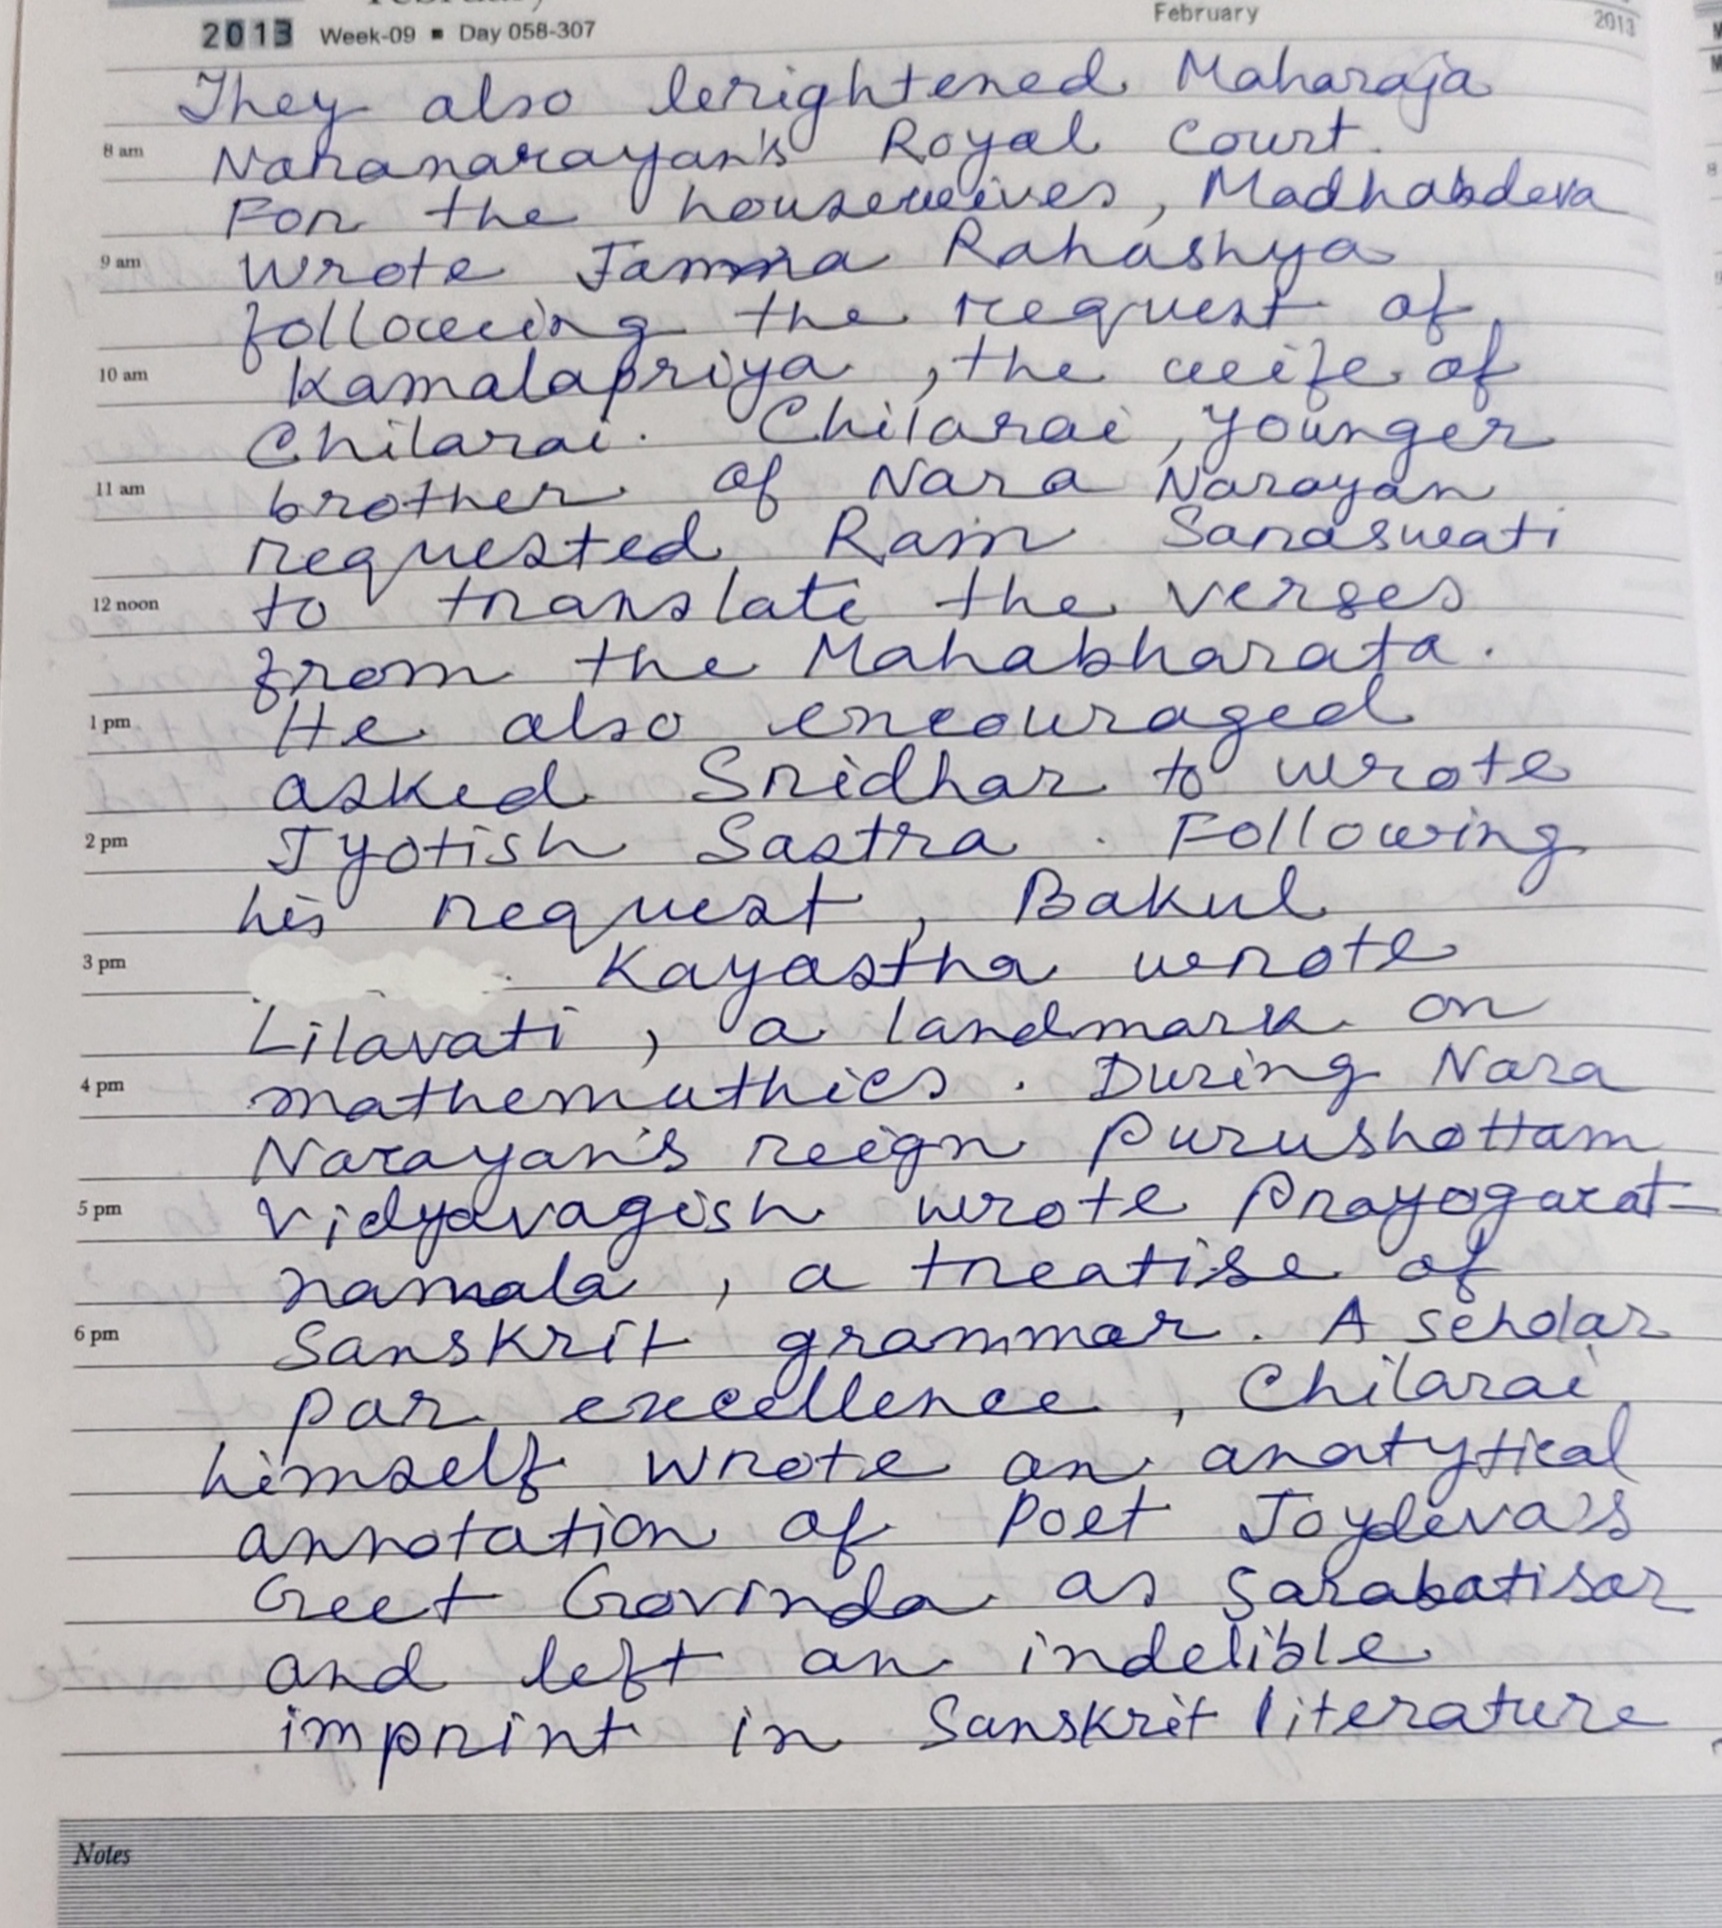 February
2013 Week-09 ▪ Day 058-307
February
2013
They also brightened Maharaja
8 am
Naranarayan's Royal Court.
For the housewives, Madhabdeva
9 am
wrote Janma Rahashya,
following the request of
10 am
Kamalapriya, the wife of
Chilarai. Chilarai, younger
11 am
brother of Nara Narayan
requested Ram Saraswati
12 noon
to translate the verses
from the Mahabharata.
1 pm
He also encouraged
asked Sridhar to wrote
2 pm
Jyotish Sastra. Following
his request, Bakul
3 pm
Kayastha wrote
Lilavati, a landmark on
4 pm
mathemathics. During Nara
Narayan's reign Purushottam
5 pm
Vidyavagish wrote Prayogarat-
namala, a treatise of
6 pm
Sanskrit grammar. A scholar
par excellence, Chilarai
himself wrote an anatytical
annotation of Poet Joydeva's
Geet Govinda as Sarabatisar
and left an indelible
imprint in Sanskrit literature
Notes